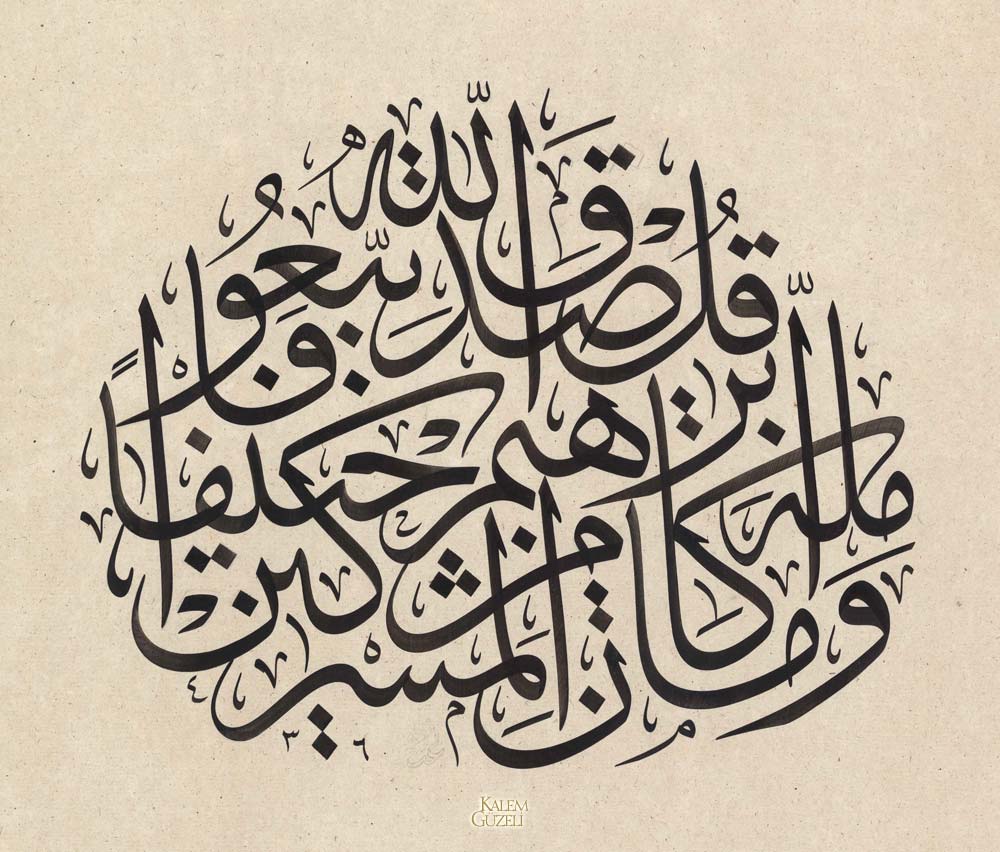 قُلْ صَدَقَ اللّٰهُ فَاتَّبِعُوا
مِلَّةَ اِبْرٰهِيمَ حَنِيفًا
وَمَا كَانَ مِنَ الْمُشْرِكِينَ
KALEM
GÜZELİ